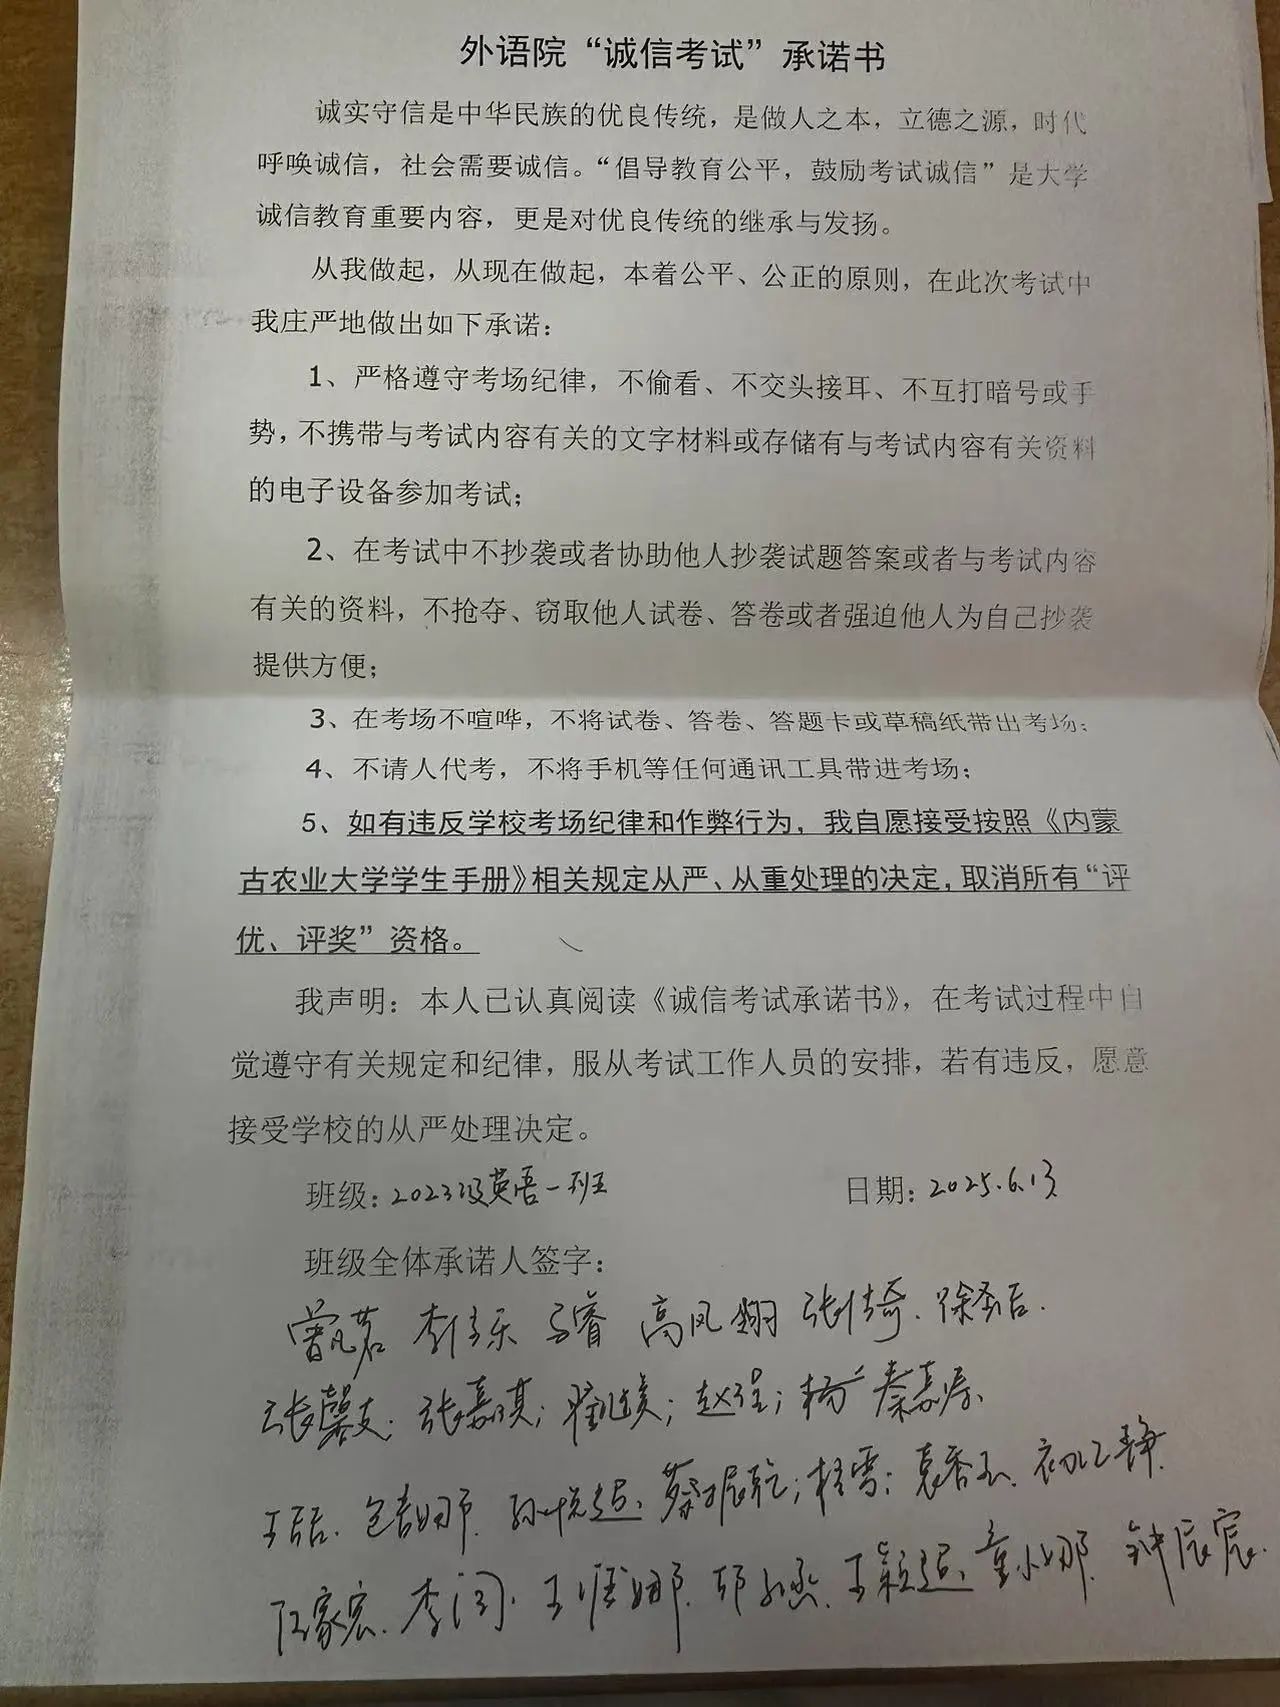 外语院“诚信考试”承诺书
诚实守信是中华民族的优良传统，是做人之本，立德之源，时代
呼唤诚信，社会需要诚信。“倡导教育公平，鼓励考试诚信”是大学
诚信教育重要内容，更是对优良传统的继承与发扬。
从我做起，从现在做起，本着公平、公正的原则，在此次考试中
我庄严地做出如下承诺：
1、严格遵守考场纪律，不偷看、不交头接耳、不互打暗号或手
势，不携带与考试内容有关的文字材料或存储有与考试内容有关资料
的电子设备参加考试；
2、在考试中不抄袭或者协助他人抄袭试题答案或者与考试内容
有关的资料，不抢夺、窃取他人试卷、答卷或者强迫他人为自己抄袭
提供方便；
3、在考场不喧哗，不将试卷、答卷、答题卡或草稿纸带出考场；
4、不请人代考，不将手机等任何通讯工具带进考场；
5、如有违反学校考场纪律和作弊行为，我自愿接受按照《内蒙
古农业大学学生手册》相关规定从严、从重处理的决定，取消所有“评
优、评奖”资格。
我声明：本人已认真阅读《诚信考试承诺书》，在考试过程中自
觉遵守有关规定和纪律，服从考试工作人员的安排，若有违反，愿意
接受学校的从严处理决定。
班级：2023级英语一班 日期：2025.6.13
班级全体承诺人签字：
曾凡茗 高凤翔 张传奇.
张嘉琪；赵程；杨
桂雪；袁香玉. 初江静.
李闰. 童小娜. 钟辰宸.